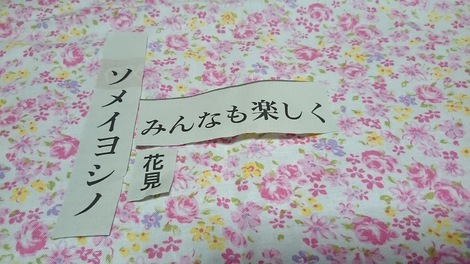 ソメイヨシノ
みんなも楽しく
花見